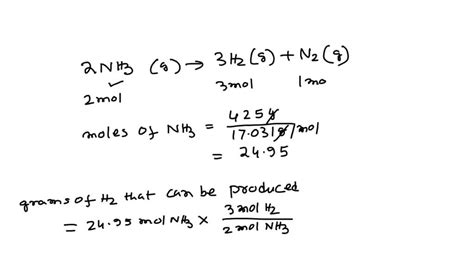 2NH3 (g) → 3H2(g) + N2(g)
2mol 3mol 1mo
moles of NH3 = 425g / 17.031g/mol
= 24.95
grams of H2 that can be produced
= 24.95 mol NH3 × 3 mol H2 / 2 mol NH3